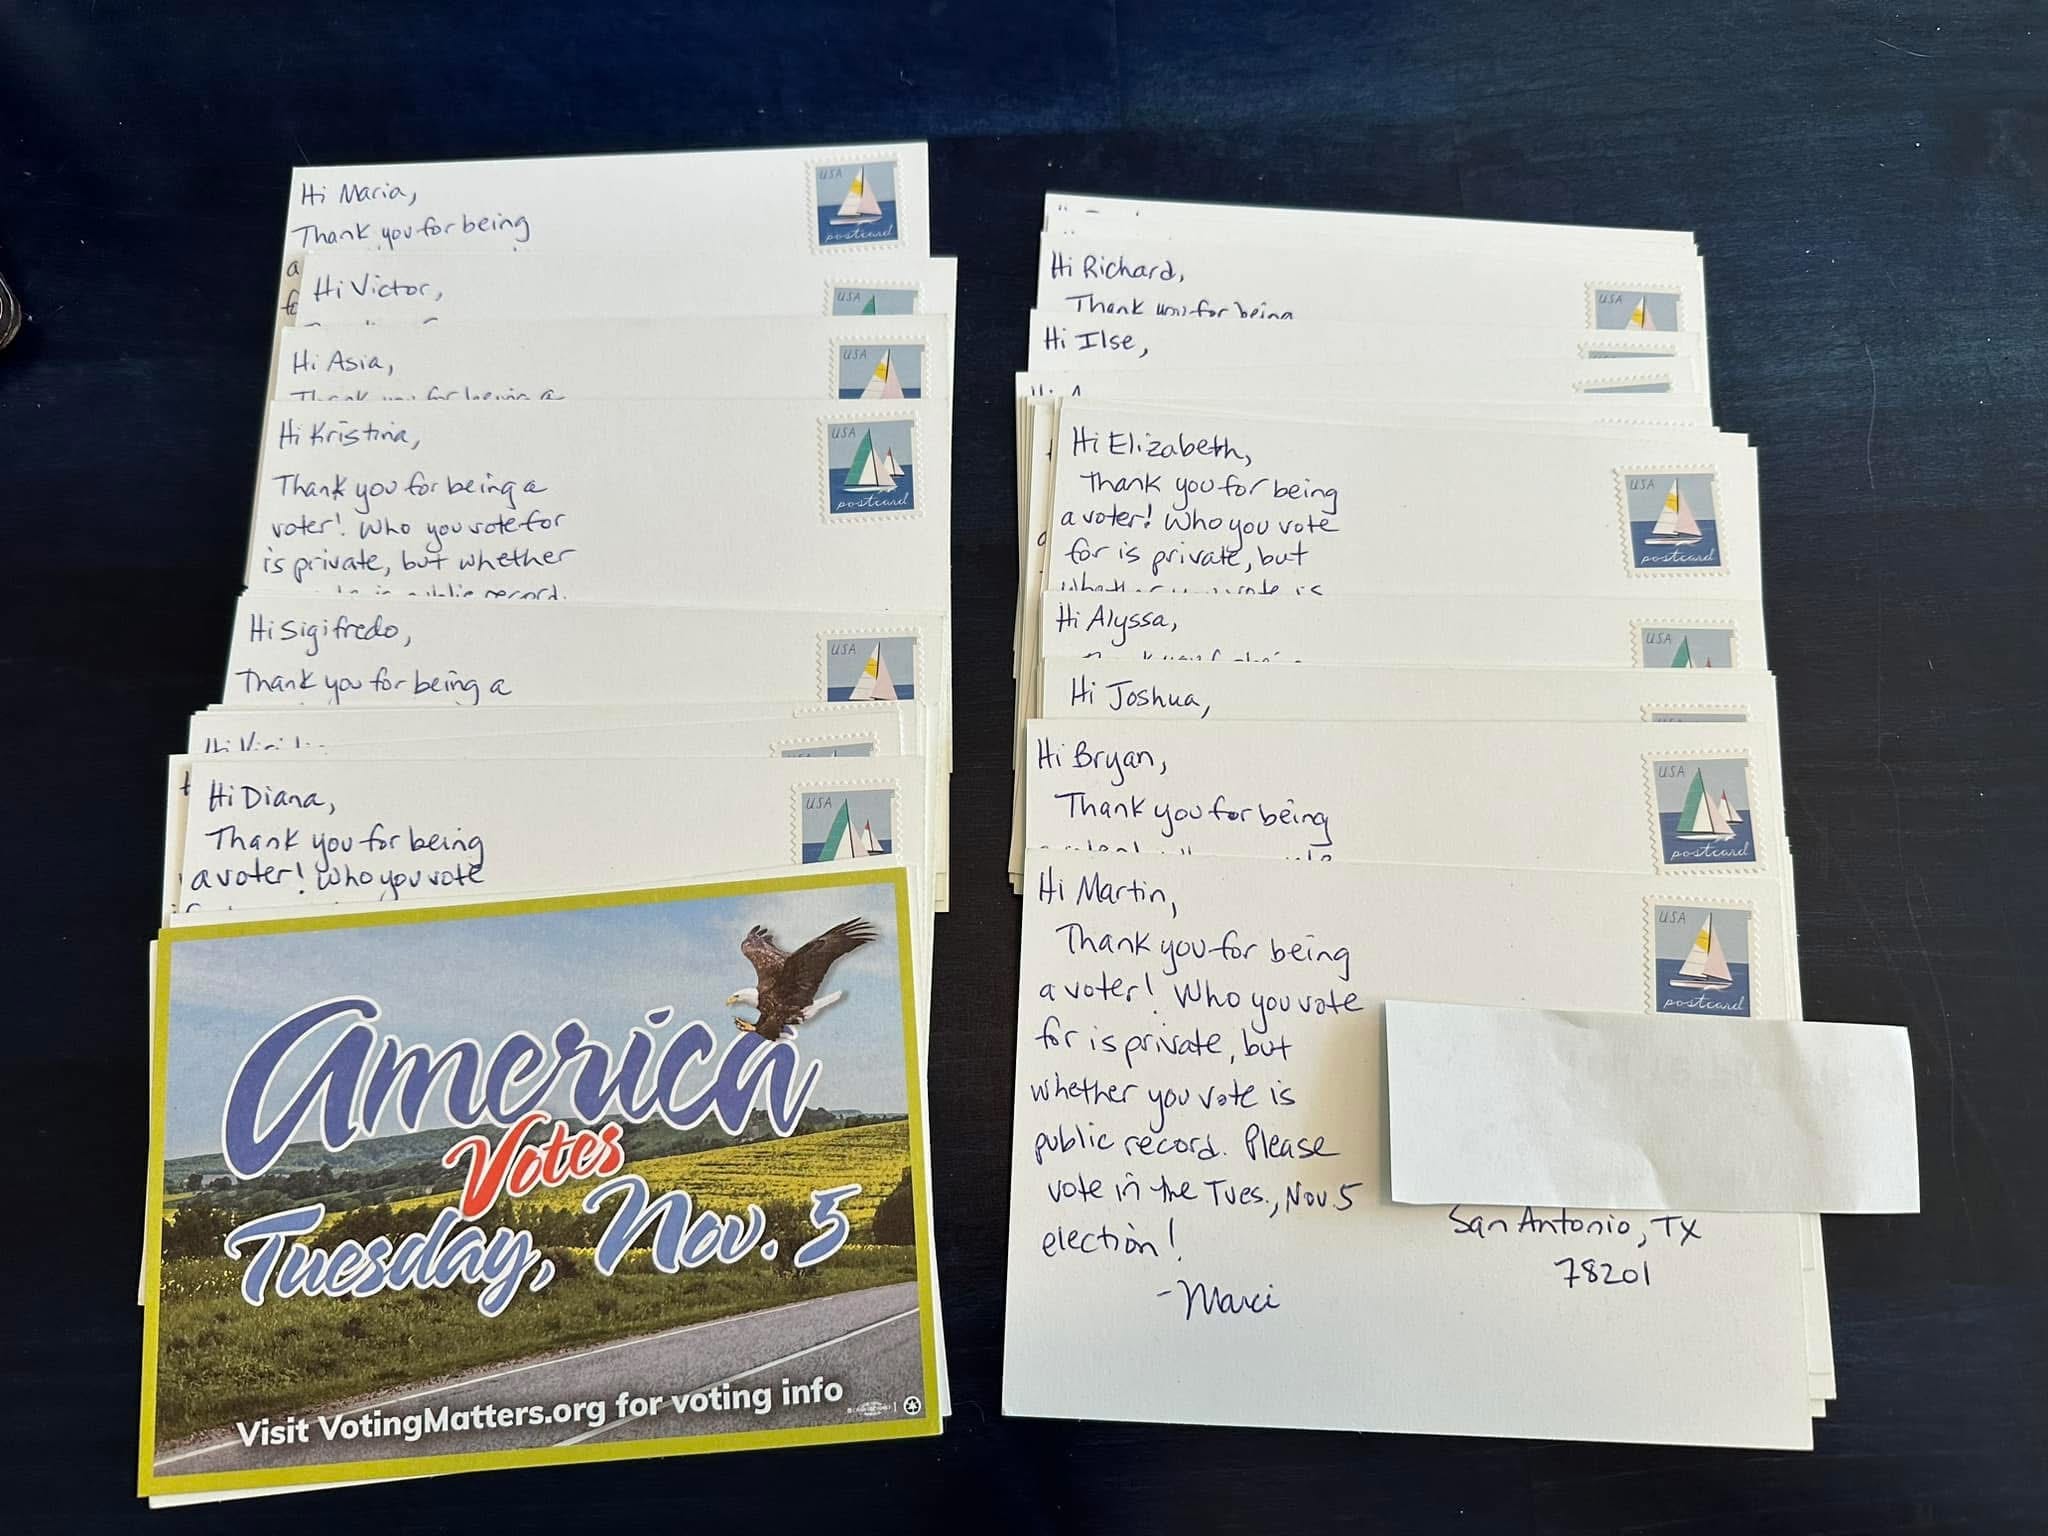 Hi Maria,
Thank you for being
a
fo
USA
postcard
Hi Victor,
USA
Hi Asia,
Thank you for being a
USA
Hi Kristina,
Thank you for being a
voter! Who you vote for
is private, but whether
public record.
USA
postcard
Hi Sigifredo,
Thank you for being a
USA
Hi
Hi Diana,
Thank you for being
a voter! Who you vote
USA
America
Votes
Tuesday, Nov. 5
Visit VotingMatters.org for voting info
Hi Richard,
Thank you for being
USA
Hi Ilse,
Hi A
Hi Elizabeth,
Thank you for being
a voter! Who you vote
for is private, but
whether you vote is
USA
postcard
Hi Alyssa,
Thank you for being
USA
Hi Joshua,
USA
Hi Bryan,
Thank you for being
USA
postcard
Hi Martin,
Thank you for being
a voter! Who you vote
for is private, but
whether you vote is
public record. Please
vote in the Tues., Nov. 5
election!
-Marci
USA
postcard
San Antonio, TX
78201